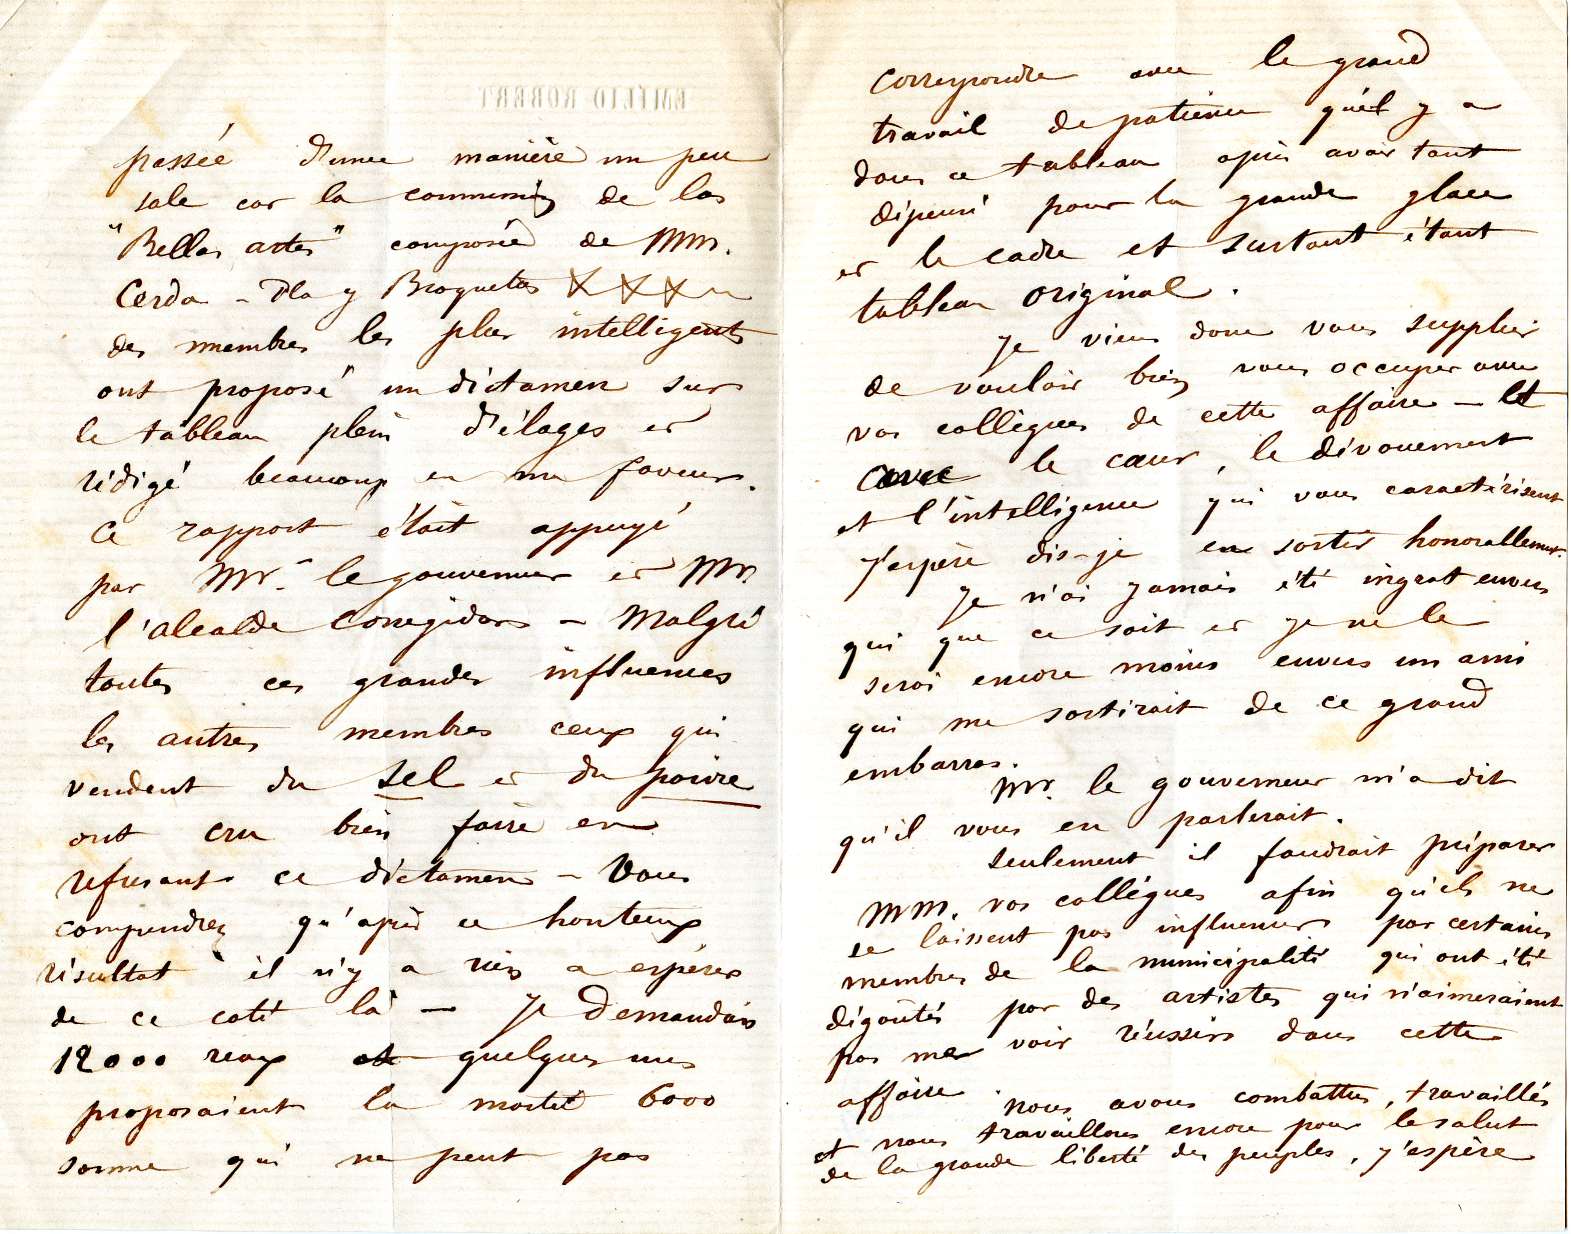 passée d'une manière un peu
sale car la commission de las
"Bellas artes" composée de MM.
Cerda - Pla y Broquetas XXX
des membres les plus intelligents
ont proposé un dictamen sur
le tableau plein d'éloges et
rédigé beaucoup en ma faveur.
Ce rapport était appuyé
par Mr. le gouverneur et Mr.
l'alcalde Corregidor - Malgré
toutes ces grandes influences
les autres membres ceux qui
vendent du sel et du poivre
ont cru bien faire en
refusant ce dictamen - Vous
comprendrez qu'après ce honteux
résultat il n'y a rien a espérer
de ce coté là - Je demandais
12000 reaux et quelques uns
proposaient la moitié 6000
somme qui ne peut pas
EMILIO ROBERT
correspondre avec le grand
travail de patience qu'il y a
dans ce tableau après avoir tant
dépensé pour la grande glace
et le cadre et surtout étant
tableau original.
Je viens donc vous supplier
de vouloir bien vous occuper avec
vos collègues de cette affaire - et
avec le cœur, le dévouement
et l'intelligence qui vous caractérisent
j'espère dis-je en sortir honorablement.
Je n'ai jamais été ingrat envers
qui que ce soit et je ne le
serai encore moins envers un ami
qui me sortirait de ce grand
embarras.
Mr. le gouverneur m'a dit
qu'il vous en parlerait.
Seulement il faudrait préparer
MM. vos collégues afin qu'ils ne
se laissent pas influencer par certains
membres de la municipalité qui ont été
dégoûtés par des artistes qui n'aimeraient
pas me voir réussir dans cette
affaire.
Nous avons combattus, travaillés
et nous travaillons encore pour le salut
de la grande liberté des peuples, j'espère